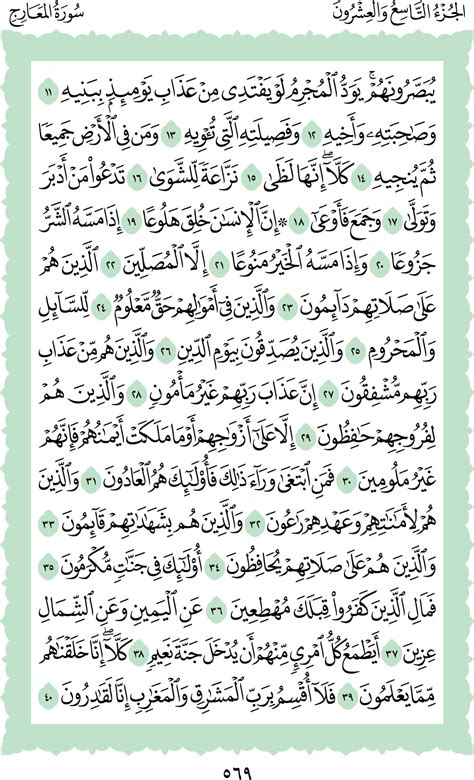 الجُزْءُ التَّاسِعُ وَالْعِشْرُونَ
سُورَةُ المَعَارِجِ
يُبَصَّرُونَهُمْۚ يَوَدُّ ٱلْمُجْرِمُ لَوْ يَفْتَدِى مِنْ عَذَابِ يَوْمِئِذِۭ بِبَنِيهِ ١١
وَصَٰحِبَتِهِۦ وَأَخِيهِ ١٢ وَفَصِيلَتِهِ ٱلَّتِى تُـْٔوِيهِ ١٣ وَمَن فِى ٱلْأَرْضِ جَمِيعًا
ثُمَّ يُنجِيهِ ١٤ كَلَّآۖ إِنَّهَا لَظَىٰ ١٥ نَزَّاعَةً لِّلشَّوَىٰ ١٦ تَدْعُوا۟ مَنْ أَدْبَرَ
وَتَوَلَّىٰ ١٧ وَجَمَعَ فَأَوْعَىٰٓ ١٨ ۞ إِنَّ ٱلْإِنسَٰنَ خُلِقَ هَلُوعًا ١٩ إِذَا مَسَّهُ ٱلشَّرُّ
جَزُوعًا ٢٠ وَإِذَا مَسَّهُ ٱلْخَيْرُ مَنُوعًا ٢١ إِلَّا ٱلْمُصَلِّينَ ٢٢ ٱلَّذِينَ هُمْ
عَلَىٰ صَلَاتِهِمْ دَآئِمُونَ ٢٣ وَٱلَّذِينَ فِىٓ أَمْوَٰلِهِمْ حَقٌّ مَّعْلُومٌ ٢٤ لِّلسَّآئِلِ
وَٱلْمَحْرُومِ ٢٥ وَٱلَّذِينَ يُصَدِّقُونَ بِيَوْمِ ٱلدِّينِ ٢٦ وَٱلَّذِينَ هُم مِّنْ عَذَابِ
رَبِّهِم مُّشْفِقُونَ ٢٧ إِنَّ عَذَابَ رَبِّهِمْ غَيْرُ مَأْمُونٍ ٢٨ وَٱلَّذِينَ هُمْ
لِفُرُوجِهِمْ حَٰفِظُونَ ٢٩ إِلَّا عَلَىٰٓ أَزْوَٰجِهِمْ أَوْ مَا مَلَكَتْ أَيْمَٰنُهُمْ فَإِنَّهُمْ
غَيْرُ مَلُومِينَ ٣٠ فَمَنِ ٱبْتَغَىٰ وَرَآءَ ذَٰلِكَ فَأُو۟لَٰٓئِكَ هُمُ ٱلْعَادُونَ ٣١ وَٱلَّذِينَ
هُمْ لِأَمَٰنَٰتِهِمْ وَعَهْدِهِمْ رَٰعُونَ ٣٢ وَٱلَّذِينَ هُم بِشَهَٰدَٰتِهِمْ قَآئِمُونَ ٣٣
وَٱلَّذِينَ هُمْ عَلَىٰ صَلَاتِهِمْ يُحَافِظُونَ ٣٤ أُو۟لَٰٓئِكَ فِى جَنَّٰتٍ مُّكْرَمُونَ ٣٥
فَمَالِ ٱلَّذِينَ كَفَرُوا۟ قِبَلَكَ مُهْطِعِينَ ٣٦ عَنِ ٱلْيَمِينِ وَعَنِ ٱلشِّمَالِ
عِزِينَ ٣٧ أَيَطْمَعُ كُلُّ ٱمْرِئٍ مِّنْهُمْ أَن يُدْخَلَ جَنَّةَ نَعِيمٍ ٣٨ كَلَّآۖ إِنَّا خَلَقْنَٰهُم
مِّمَّا يَعْلَمُونَ ٣٩ فَلَآ أُقْسِمُ بِرَبِّ ٱلْمَشَٰرِقِ وَٱلْمَغَٰرِبِ إِنَّا لَقَٰدِرُونَ ٤٠
٥٦٩